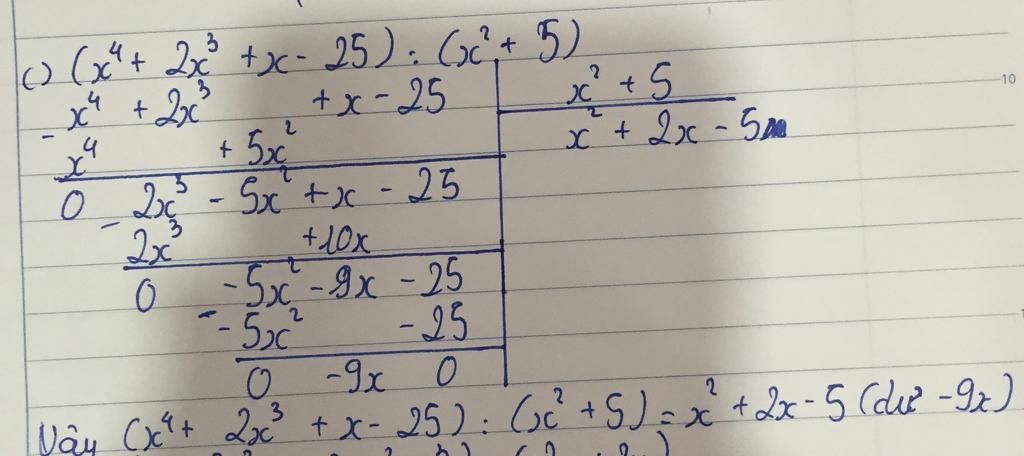 c) (x⁴ + 2x³ + x - 25) : (x² + 5)
- x⁴ + 2x³ + x - 25
x² + 5
x⁴ + 5x²
x² + 2x - 5
0 - 2x³ - 5x² + x - 25
2x³ + 10x
0 - 5x² - 9x - 25
- - 5x² - 25
0 - 9x 0
Vậy (x⁴ + 2x³ + x - 25) : (x² + 5) = x² + 2x - 5 (dư -9x)